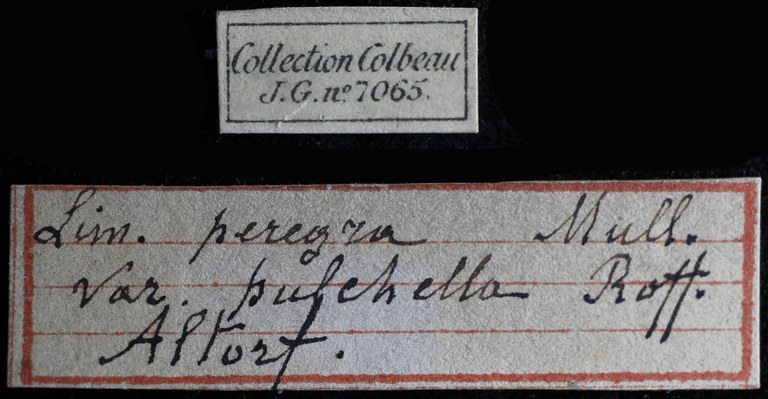 Collection Colbeau
J. G. nº 7065.
Lim. peregra Mull.
Var. pulchella Roff.
Altorf.